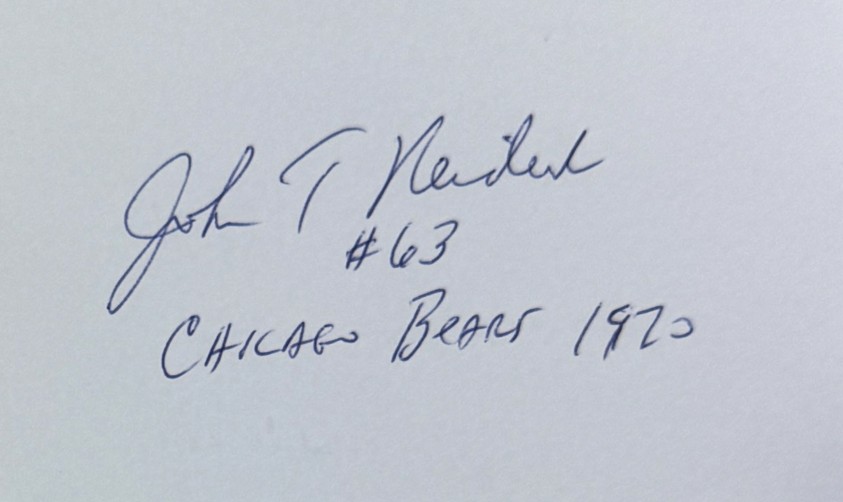 John T Neidert
#63
CHICAGO BEARS 1970